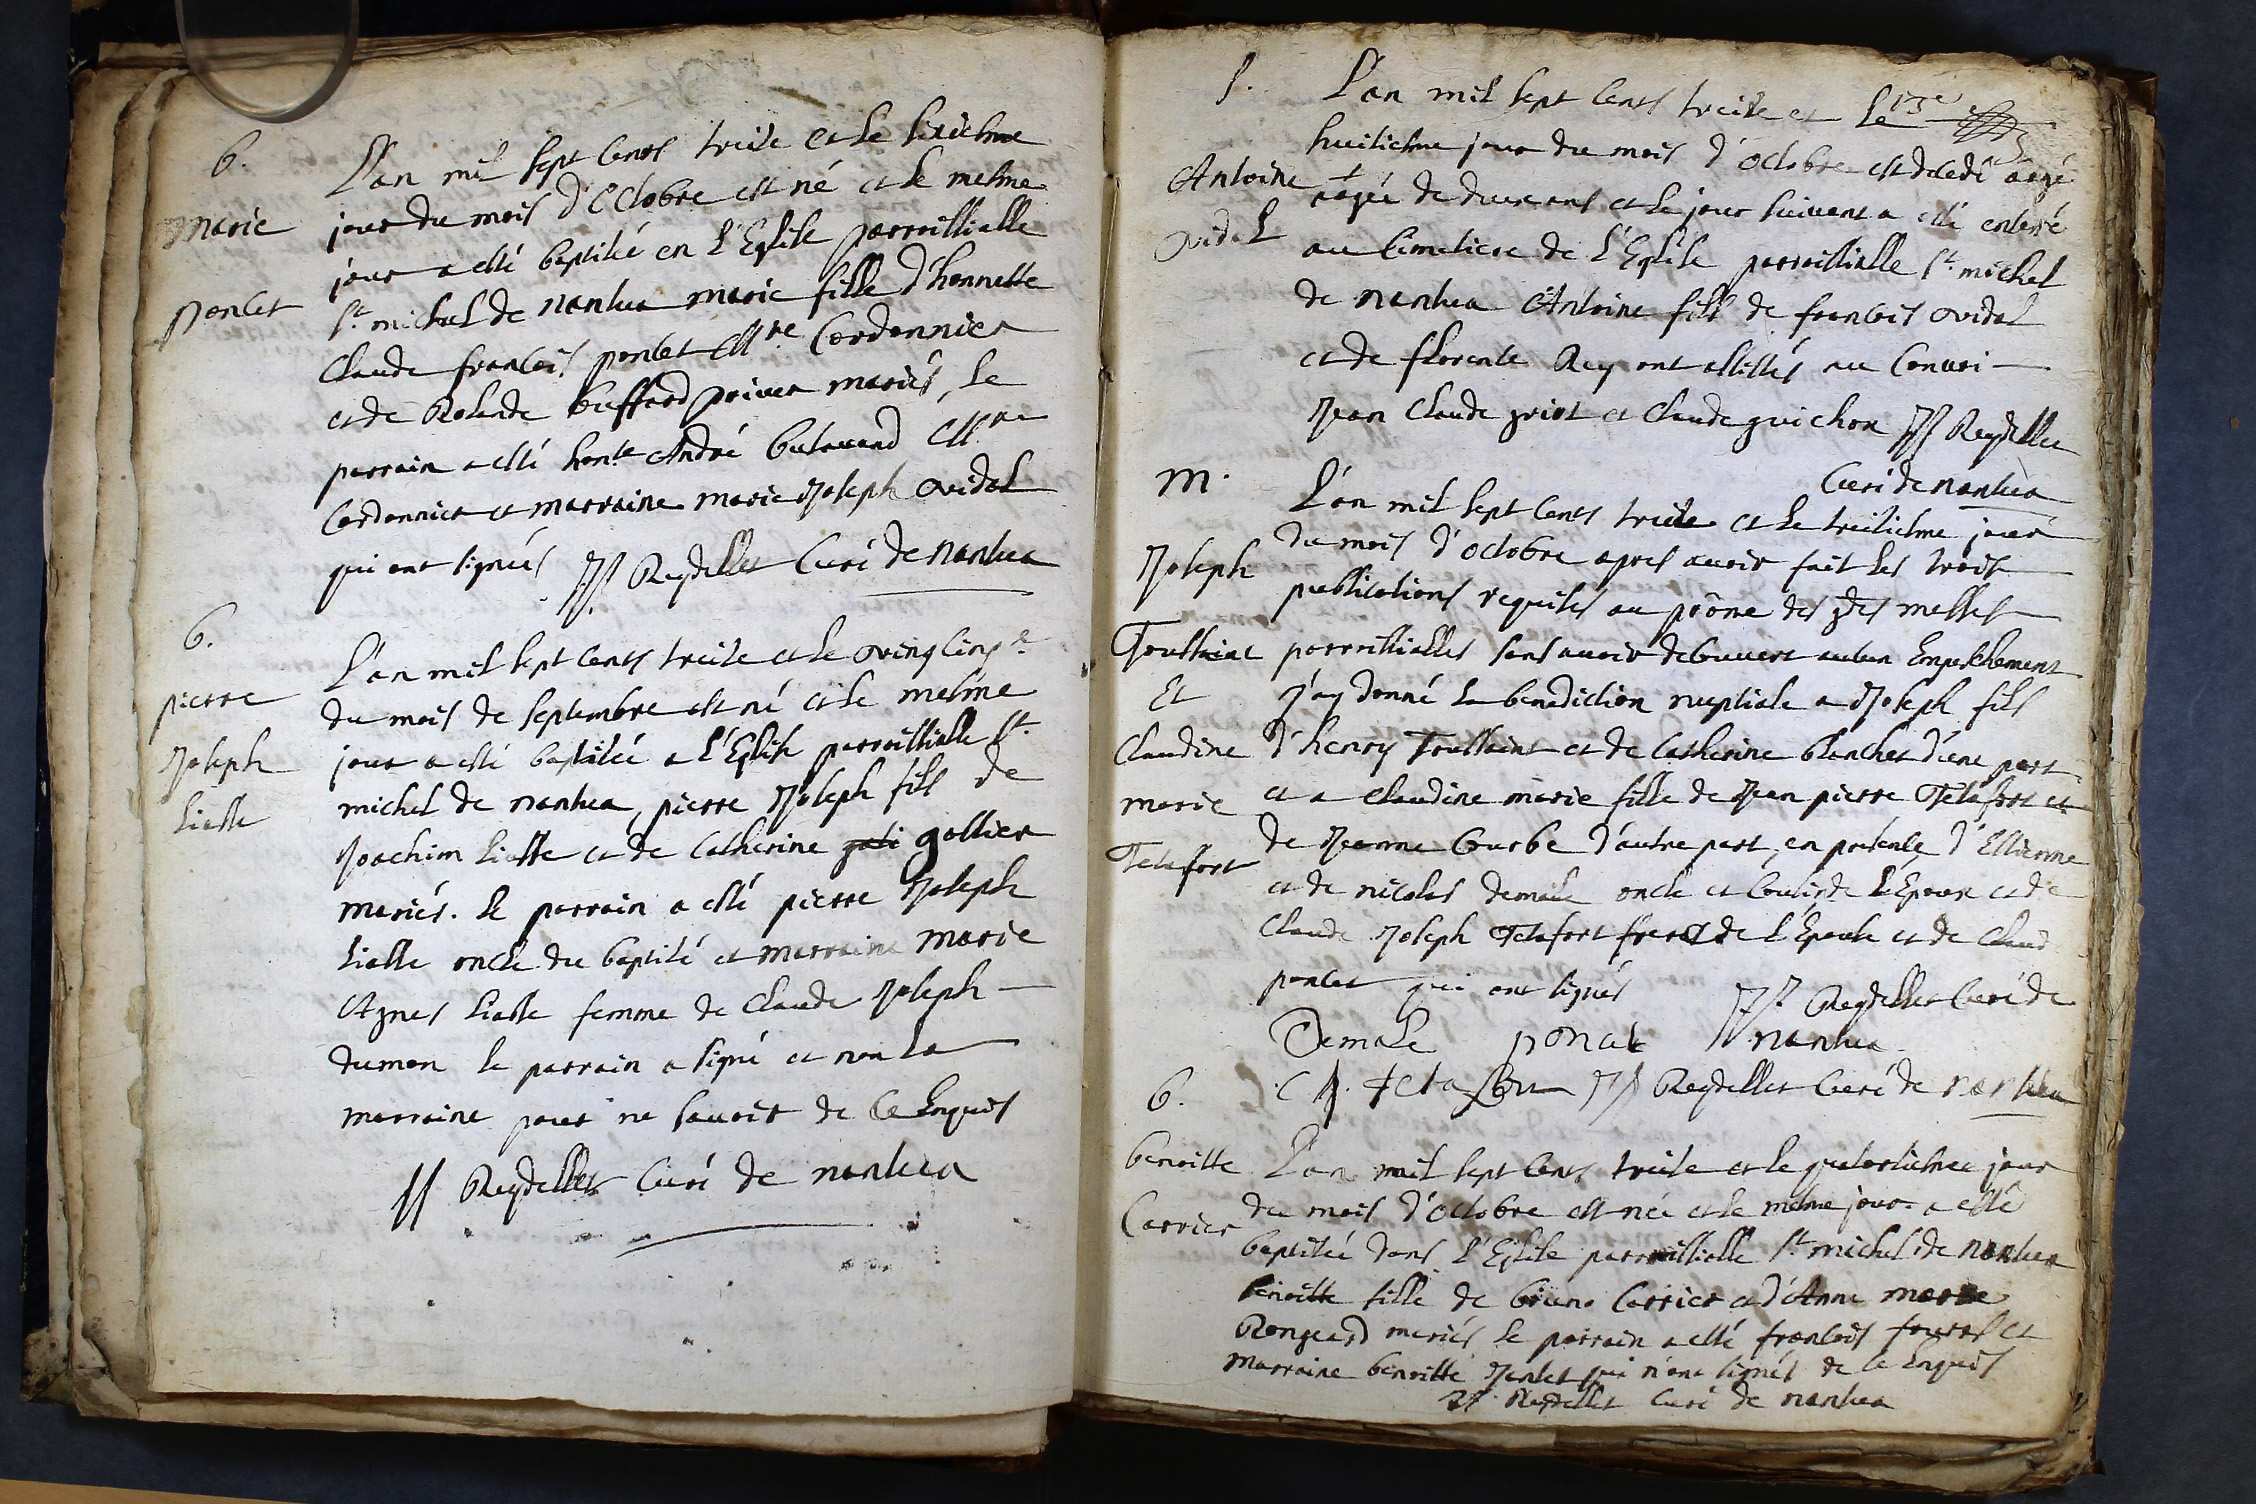 b.
marie
poncet
L'an mil sept cents treize et le sixiesme
jour du mois d'octobre est né et le mesme
jour a esté baptisée en l'Eglise parroissialle
St. michel de nantua marie fille d'honneste
Claude francois poncet Mre Cordonnier
et de Rolande buffard privez mariés, le
parrain a esté honle. André Mre
Cordonnier et marraine marie Joseph vidal
qui ont signés JJ. Reydellet Curé de nantua
b.
pierre
Joseph
Liasse
L'an mil sept cents treize et le vingt cinqe.
du mois de septembre est né et le mesme
jour a esté baptisé a l'Eglise parroissialle St.
michel de nantua, pierre Joseph fils de
Joachim Liasse et de Catherine gollier
mariés. le parrain a esté pierre Joseph
Liasse oncle du baptisé et marraine marie
Agnes Liasse femme de Claude Joseph
dumon le parrain a signé et non la
marraine pour ne savoir de ce Enquis
JJ Reydellet Curé de nantua
S.
Antoine
vidal
L'an mil sept cents treize et le 13e
huitiesme jour du mois d'octobre est décédé aagé
aagée de deux ans et le jour suivant a esté enterré
au Cimetiere de l'Eglise parroissialle St. michel
de nantua Antoine fils de francois vidal
et de florence Rey ont assistés au Convoi
Jean Claude griot et Claude guichon JJ Reydellet
Curé de nantua
m.
Joseph
Toussaint
Et
Claudine
marie
Tetafort
L'an mil sept cents treize et le treiziesme jour
du mois d'octobre apres avoir fait les trois
publications requises au prône des gdes messes
parroissialles sans avoir decouvert aucun Empeschement
J'ay donné la benediction nuptiale a Joseph fils
d'henry Toussaint et de Catherine blanchet d'une part
et a Claudine marie fille de Jean pierre Tetafort et
de Jeanne Courbe d'autre part, en présence d'Estienne
et de nicolas demale oncle et Cousin de l'Epoux et de
Claude Joseph Tetafort frere de l'Epouse et de Claud
poncet qui ont signés JJ. Reydellet Curé de
Demale poncet nantua
C J. tetafort JJ Reydellet Curé de nantua
b.
benoitte
Carrier
L'an mil sept cents treize et le quatorziesme jour
du mois d'octobre est née et le mesme jour a esté
baptisée dans l'Eglise parroissialle St. michel de nantua
benoitte fille de bruno Carrier et d'Anne marie
Rongeard mariés le parrain a esté francois et
marraine benoitte qui n'ont signés de ce Enquis
JJ. Reydellet Curé de nantua